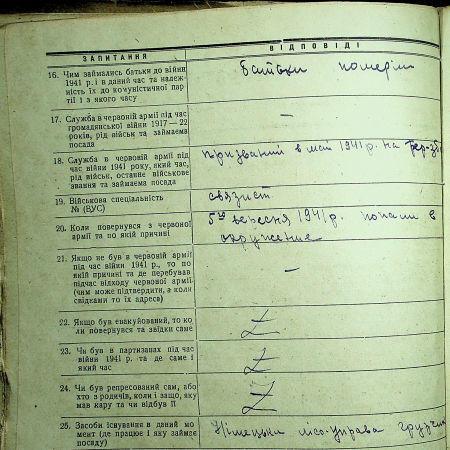 ЗАПИТАННЯ
ВІДПОВІДІ
16. Чим займались батьки до війни
1941 р. і в даний час та належ-
ність їх до комуністичної пар-
тії і з якого часу
батьки померли
17. Служба в червоній армії під час
громадянської війни 1917—22
роках, рід військ та займаєма
посада
—
18. Служба в червоній армії під
час війни 1941 року, який час,
рід військ, останнє військове
звання та займаєма посада
призваний в май 1941 р. на
19. Військова спеціальність
№ (ВУС)
связист
20. Коли повернувся з червоної
армії та по якій причині
5го вересня 1941 р. попали в
окружение
21. Якщо не був в червоній армії
під час війни 1941 р., то по
якій причині та де перебував
підчас відходу червоної армії
(чим може підтвердити, а коли
свідками то їх адреса)
—
22. Якщо був евакуйований, то ко-
ли повернувся та звідки саме
23. Чи був в партизанах під час
війни 1941 р. та де саме і
який час
24. Чи був репресований сам, або
хто з родичів, коли і защо, яку
мав кару та чи відбув її
25. Засоби існування в даний мо-
мент (де працює і яку займає
посаду)
Німецька лісо-управа